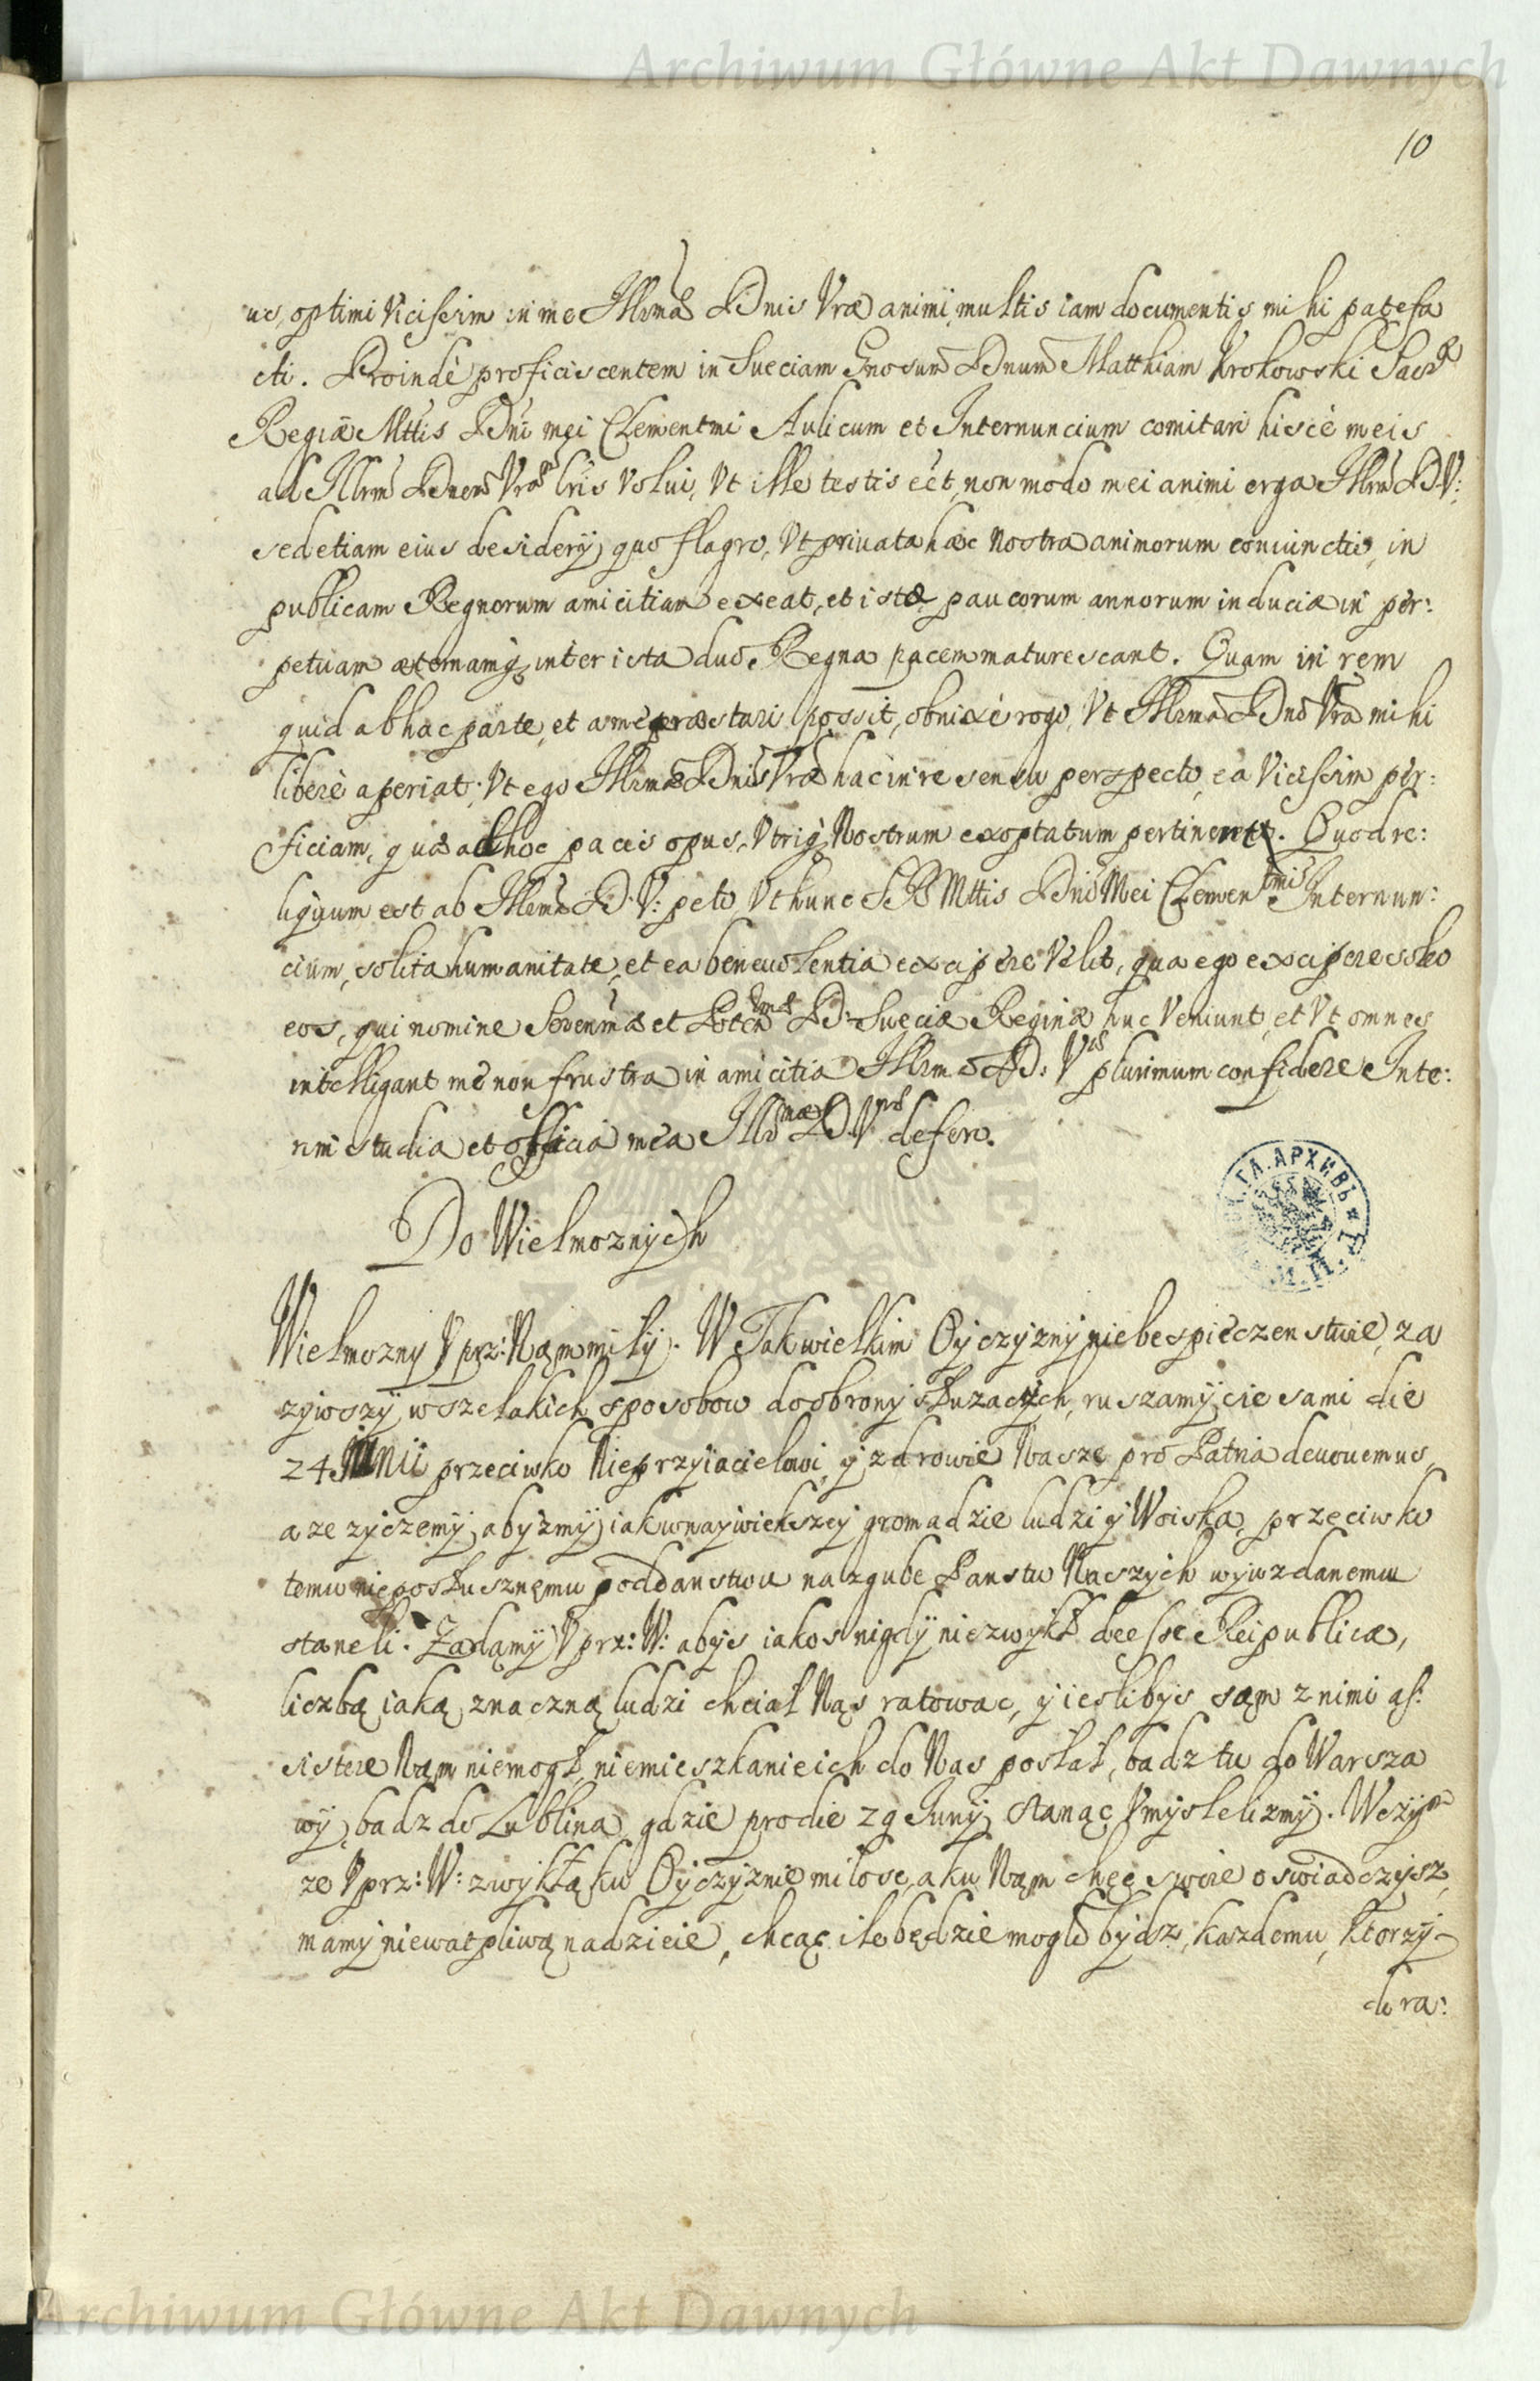 Archiwum Główne Akt Dawnych
10
us, optimi vicissim in me Illrmæ Dnis Vræ animi, multis iam documentis mihi patefa
cti. Proindè proficiscentem in Sueciam Gnosum Dnum Matthiam Krokowski Sacræ
Regiæ Mttis Dni mei Clementmi Aulicum et Internuncium comitari hisce meis
ad Illrm Dnem Vram lris volui, Vt ille testis eèt, non modo mei animi erga Illrm D V:
sed etiam eius desiderÿ, quo flagro, Vt priuata hæc Nostra animorum coniunctio, in
publicam Regnorum amicitiam exeat, et istæ paucorum annorum induciæ in per:
petuam æternamq; inter ista duo Regna pacem maturescant. Quam in rem
quid ab hac parte, et a me præstari possit, obnixè rogo, Vt Illrma Dno Vra mihi
liberè aperiat. Vt ego Illrmæ Dnis Vræ hac in re sensu perspecto, ea Vicissim per:
ficiam, quæ ad hoc pacis opus, Vtriq; Nostrum exoptatum pertinent. Quod re:
liquum est ab Illrmà D. V: peto, Vt hunc S R Mttis Dni Mei Clementmi Internun:
cium, solita humanitate, et ea beneuolentia excipere Velit, qua ego excipere soleo
eos, qui nomine Serenmæ et Potentmæ D: Sueciæ Reginæ huc Veniunt, et Vt omnes
intelligant me non frustra in amicitia Illrmæ D: Vræ plurimum confidere. Inte:
rim studia et officia mea Illrmæ D. Vræ defero.
Do Wielmoznych
Wielmozny Vprz: Nąm miłÿ. W Tak wielkim Oÿczyznÿ niebespieczenstwie, za
zÿwszÿ wszelakich sposobow do obronÿ słuzacÿch, ruszamÿ sie sami die
24 JUNII przeciwko Nieprzyiacielowi, ÿ zdrowie Nasze pro Patria deuouemus,
a ze zÿczemÿ, abÿzmÿ iak w naÿwiekszeÿ gromadzie ludzi ÿ Woiska, przeciwko
temu nieposłusznęmu poddanstwu na zgube Panstw Naszÿch wÿuzdanemu
staneli. Ządamÿ Vprz: W: abÿs iakos nigdÿ niezwÿkł deesse Reipublicæ,
liczbą iaką znaczną ludzi chciał Nąs ratowac, ÿ iesli bÿs sąm z nimi as:
sistere Nąm niemogł, niemieszkanie ich do Nas posłał, badz tu do Warsza
wÿ, badz do Lublina, gdzie pro die 29 Junÿ stanąc Vmÿslelizmÿ. W czÿm
ze Vprz: W: zwÿkłą ku Oÿczÿznie milosc, a ku Nąm chęc swoie oswiadczÿsz,
mamÿ niewatpliwą nadzieie, chcąc ile będzie mogło bÿdz, kazdemu, ktorzÿ
do ra:
Archiwum Główne Akt Dawnych